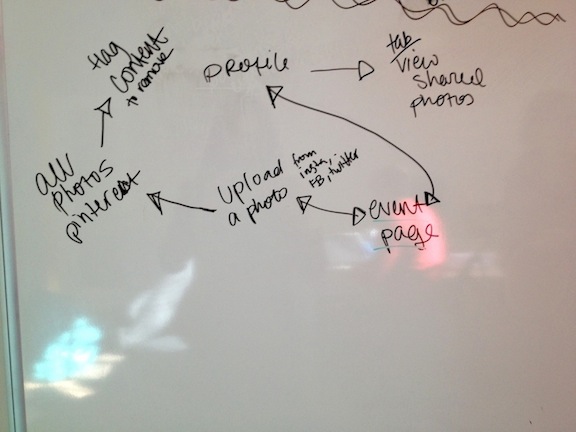 tag
content
to remove
profile
tab
view
shared
photos
all
photos
pinterest
upload
a photo
from
insta,
FB, twitter
event
page